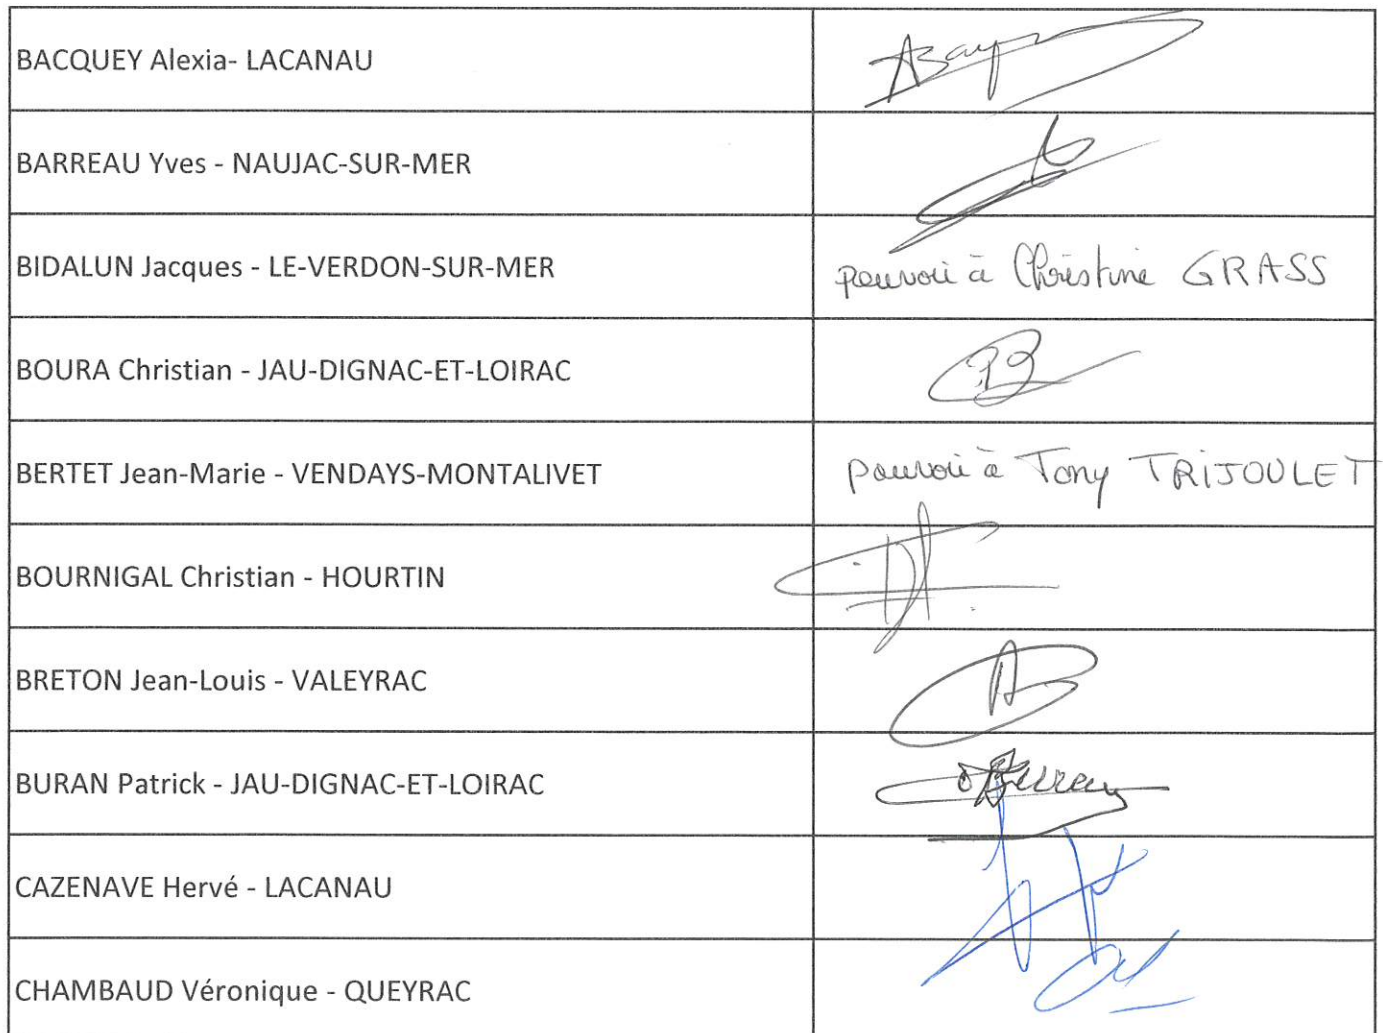 BACQUEY Alexia- LACANAU
BARREAU Yves - NAUJAC-SUR-MER
BIDALUN Jacques - LE-VERDON-SUR-MER
pouvoir à Christine GRASS
BOURA Christian - JAU-DIGNAC-ET-LOIRAC
BERTET Jean-Marie - VENDAYS-MONTALIVET
pouvoir à Tony TRIJOULET
BOURNIGAL Christian - HOURTIN
BRETON Jean-Louis - VALEYRAC
BURAN Patrick - JAU-DIGNAC-ET-LOIRAC
CAZENAVE Hervé - LACANAU
CHAMBAUD Véronique - QUEYRAC